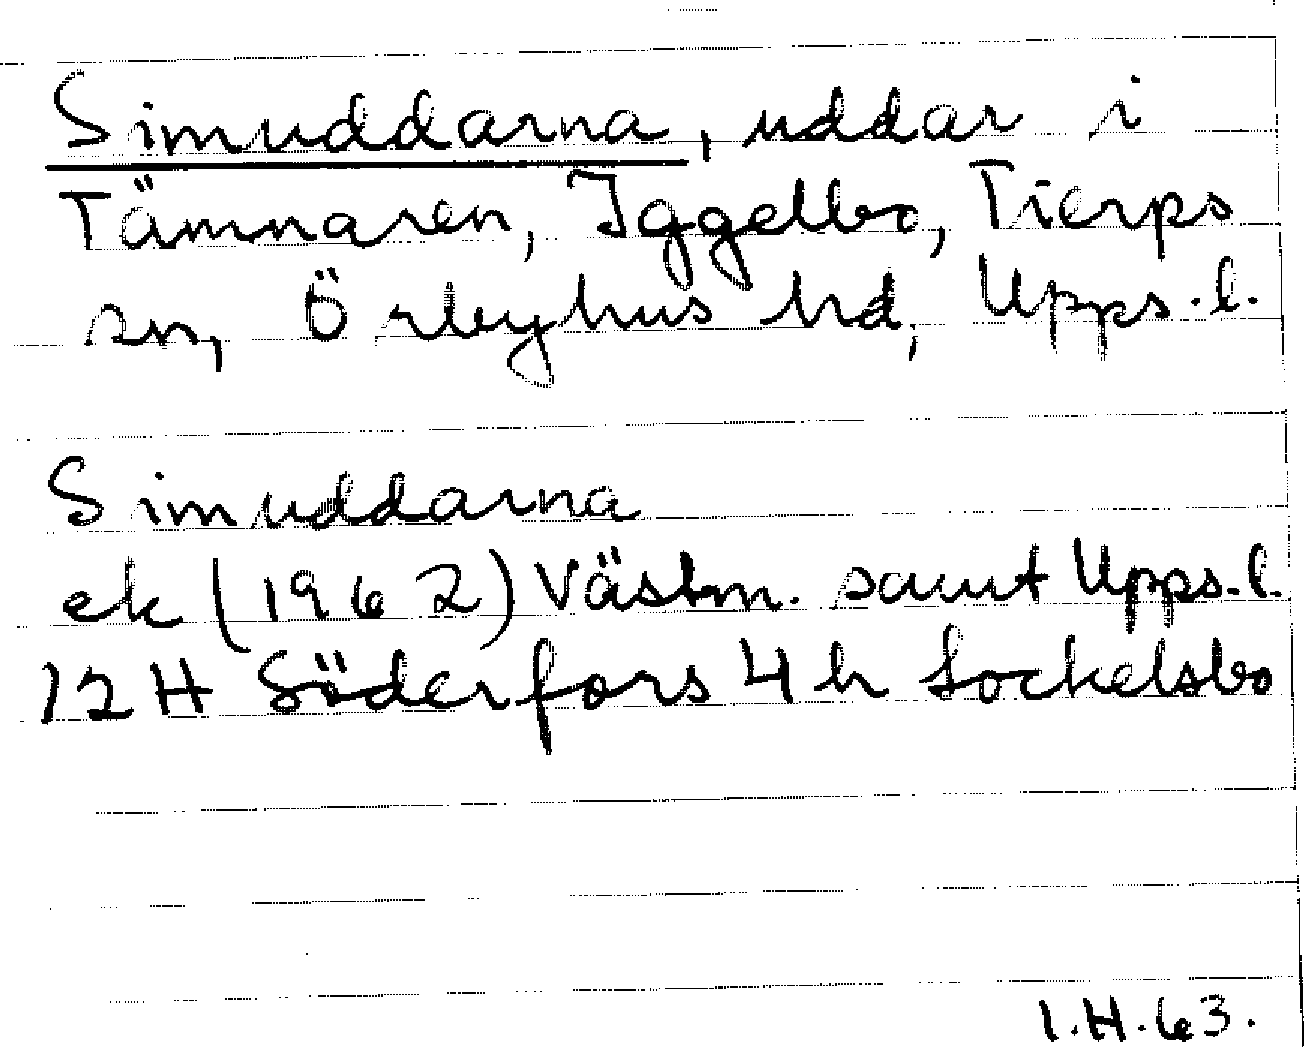 Simuddarna, uddar i
Tämnaren, Iggelbo, Tierps
sn, Örbyhus hd, Upps. l.
Simuddarna
ek (1962) Västm. samt Upps. l.
12 H Söderfors 4 h Sockelsbo
I.H. 63.